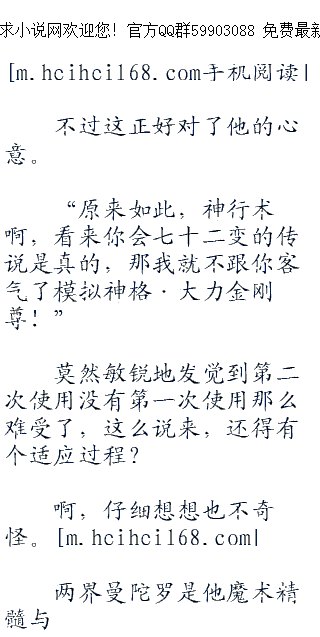 求小说网欢迎您！官方QQ群59903088 免费最新
[m.hcihci168.com手机阅读|
不过这正好对了他的心
意。
“原来如此，神行术
啊，看来你会七十二变的传
说是真的，那我就不跟你客
气了模拟神格·大力金刚
尊！”
莫然敏锐地发觉到第二
次使用没有第一次使用那么
难受了，这么说来，还得有
个适应过程？
啊，仔细想想也不奇
怪。[m.hcihci168.com|
两界曼陀罗是他魔术精
髓与